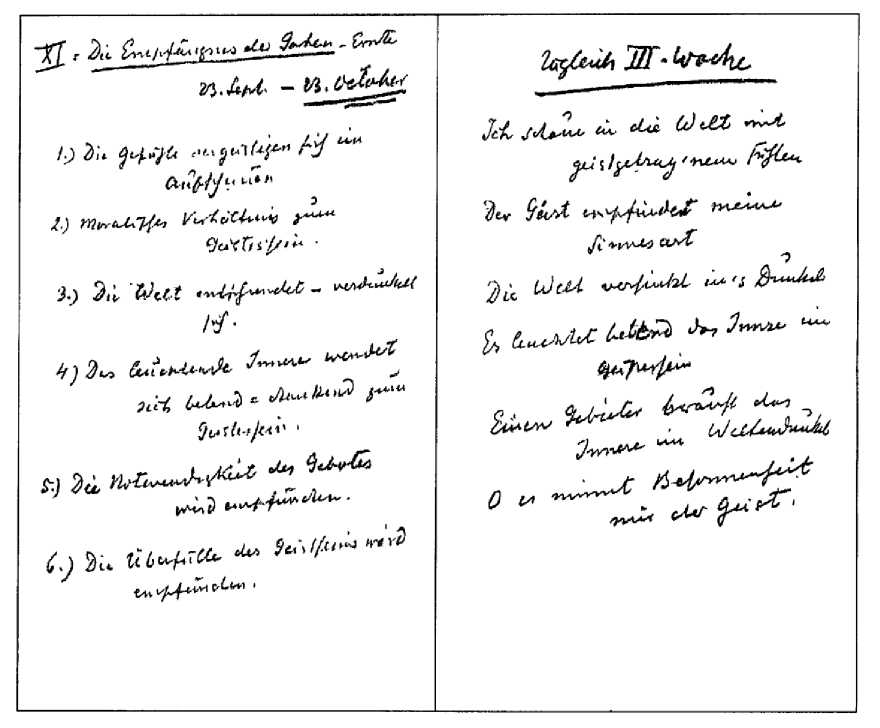 XI = Die Empfängnis der Gaben - Ernte
23. Sept. – 23. October
1.) Die Gefühle vergeistigen sich im
Aufschauen
2.) Moralisches Verhältnis zum
Geistessein.
3.) Die Welt entschwindet – verdunkelt
sich.
4) Das leuchtende Innere wendet
sich belend = dankend zum
Geistessein.
5.) Die Notwendigkeit des Gebotes
wird empfunden.
6.) Die Überfülle des Geistseins wird
empfunden.
Zugleich III. Woche
Ich schaue in die Welt mit
geistgetrag'nem Fühlen
Der Geist empfindet meine
Sinnesart
Die Welt versinkt in's Dunkel
Es leuchtet belebend das Innere im
Geistessein
Einen Gebieter braucht das
Innere im Weltendunkel
O es nimmt Besonnenheit
mir der Geist.